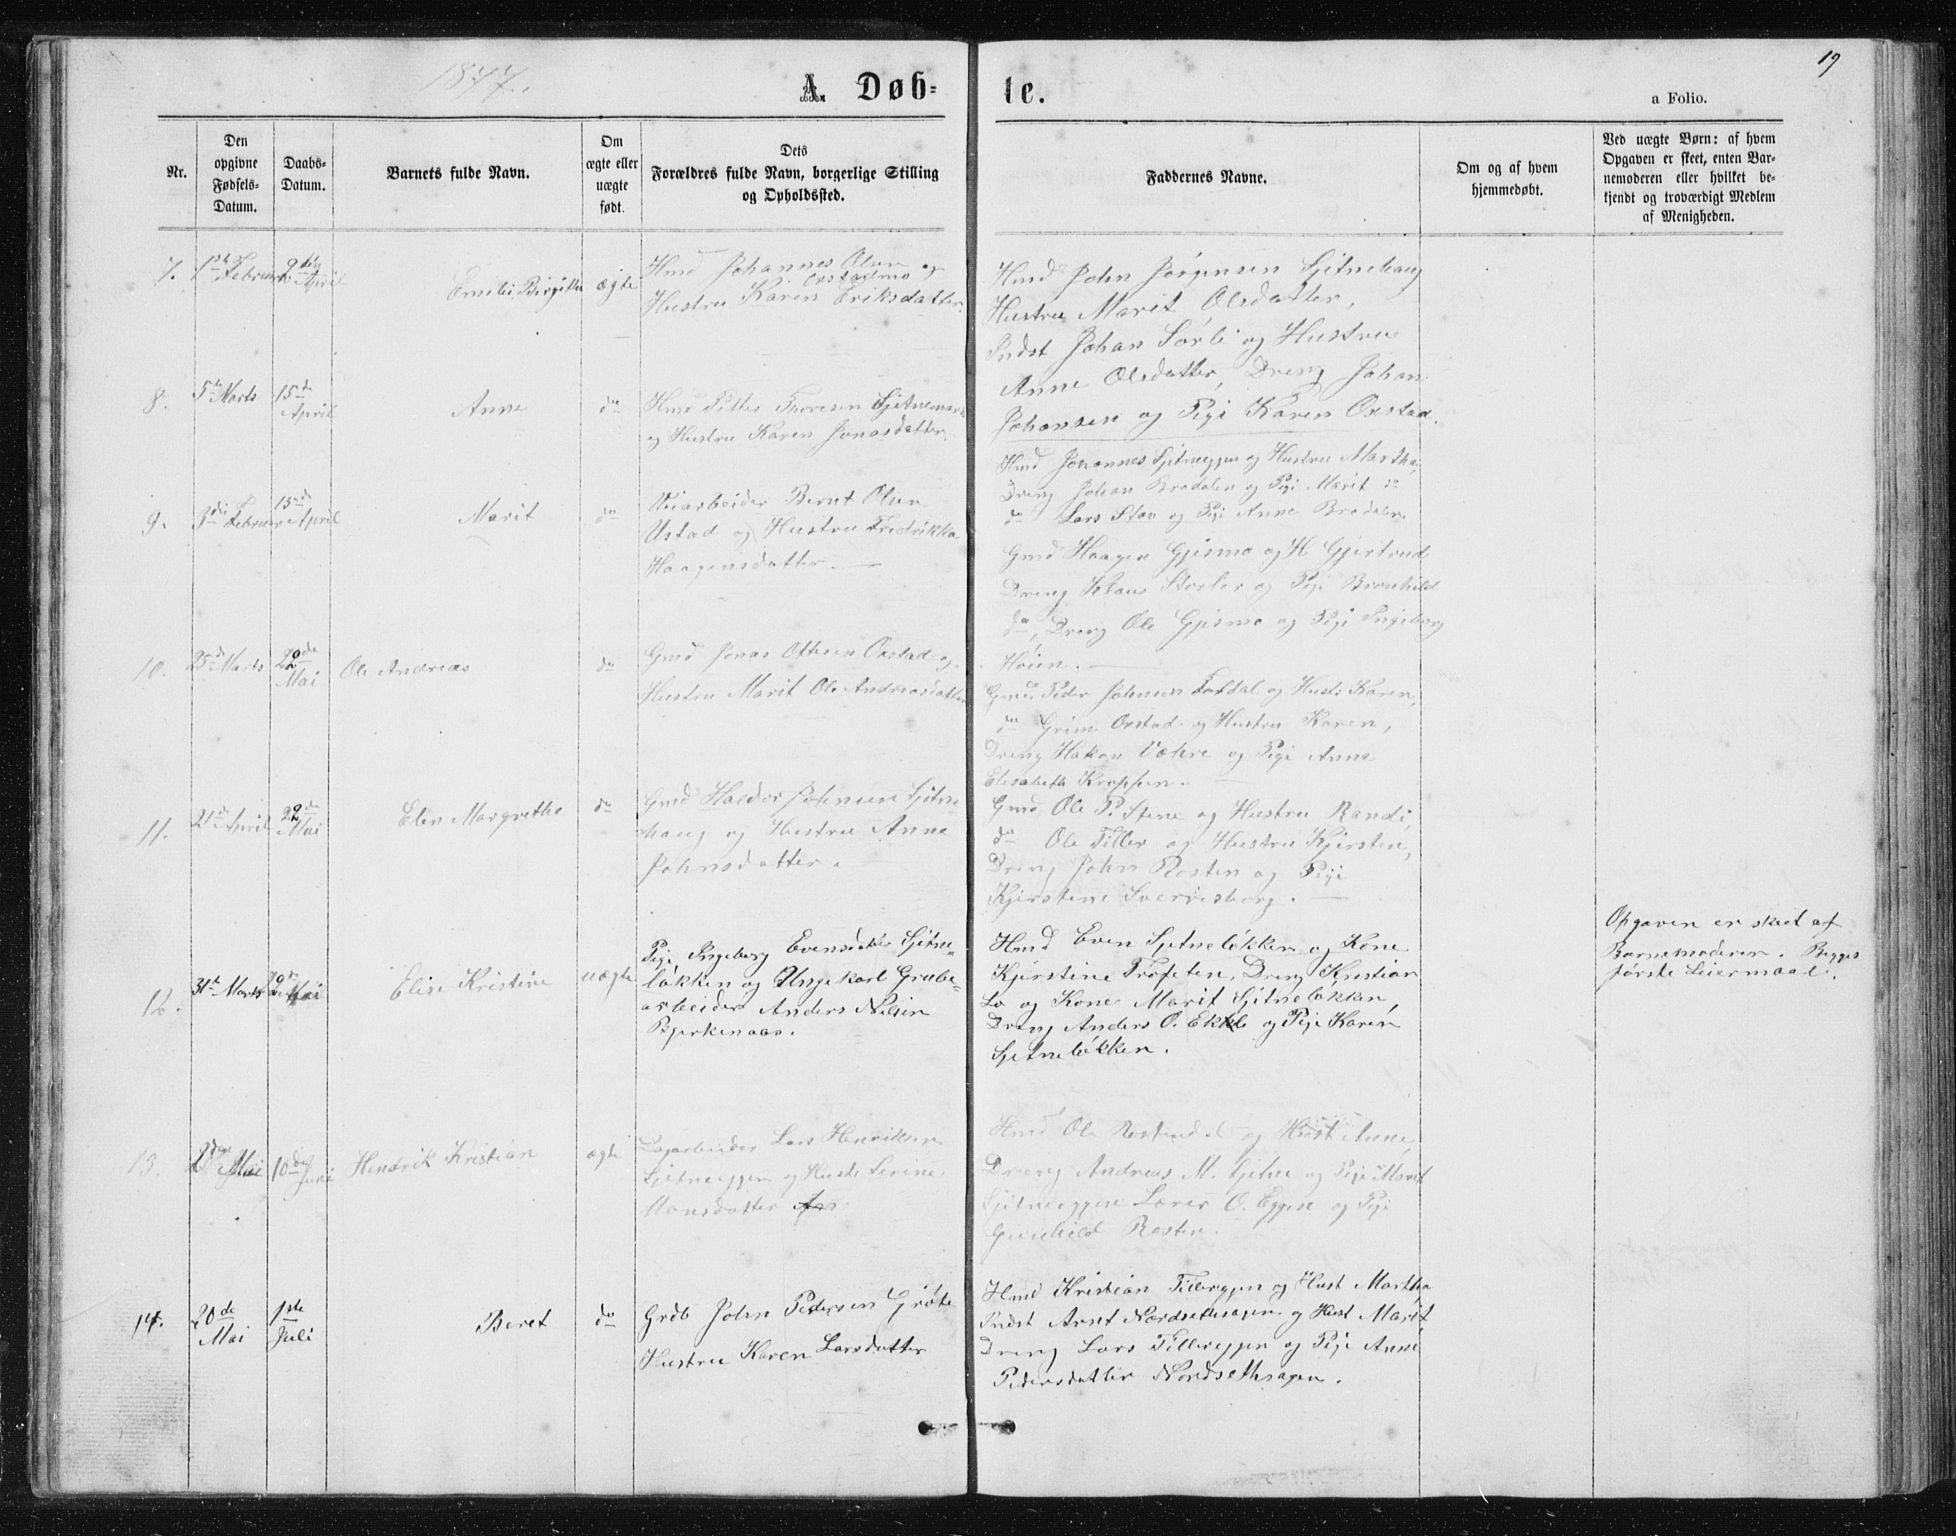 1877.
A. Døb-
te.
19
a Folio.
Nr.
Den
opgivne
Fødsels-
Datum.
Daabs-
Datum.
Barnets fulde Navn.
Om
ægte eller
uægte
født.
Dets
Forældres fulde Navn, borgerlige Stilling
og Opholdssted.
Faddernes Navne.
Om og af hvem
hjemmedøbt.
Ved uægte Børn: af hvem
Opgaven er skeet, enten Bar-
nemoderen eller hvilket be-
kjendt og troværdigt Medlem
af Menigheden.
7.
1ste Februar
2den April
Emelie Birgitte
ægte
Hmd Johannes Olsen
Oxstadmo og
Hustru Karen Eriksdatter.
Hmd John Jørgensen Sjetnehaug
Hustru Marit Olsdatter,
Indst Johan Sørli og Hustru
Anne Olsdatter, Dreng Johan
Johansen og Pige Karen Oxstad.
8.
5te Marts
15de
April
Anne
do
Hmd Petter Thoresen Sjetnemark
og Hustru Karen Jonasdatter.
Hmd Johannes Sjetneggen og Hustru Martha,
Dreng Johan Bradalen og Pige Marit do
do Lars Stav og Pige Anne Bradalen.
9.
3die Februar
15de
April
Marit
do
Veiarbeider Bernt Olsen
Ustad og Hustru Fredrikka
Haagensdatter.
Gmd Haagen Gjismo og H Gjertrud
Dreng Klaus Storler og Pige Brønhild
do, Dreng Ole Gjismo og Pige Ingeborg
Høien.
10.
25de Marts
22de
Mai
Ole Andreas
do
Gmd Jonas Ottesen Oxstad og
Hustru Marit Ole Andreasdatter
Gmd Peder Johnsen Fossdal og Hustr Karen,
do Grim Oxstad og Hustru Karen,
Dreng Hakon Væhre og Pige Anne
Elisabeth Kroppen.
11.
21de April
22de
Mai
Elen Margrethe
do
Gmd Haldor Johnsen Sjetne-
haug og Hustru Anne
Johnsdatter.
Gmd Ole P. Stene og Hustru Randi,
do Ole Tiller og Hustru Kjerstine,
Dreng John Rosten og Pige
Kjerstine Sverresborg.
12.
31te Marts
Mai
Elise Kristine
uægte
Pige Ingeborg Evensdatter Sjetne-
løkken og Ungekarl Grube-
arbeider Anders Nilsen
Bjerkenaas.
Hmd Even Sjetneløkken og Kone
Kjerstine Trøfeten, Dreng Kristian
Lo og Kone Marit Sjetneløkken,
Dreng Anders O. Ekle og Pige Karen
Sjetneløkken.
Opgaven er skeet af
Barnemoderen. Begges
første Leiermaal.
13.
Mai
10de Juni
Hendrik Kristian
ægte
Dagarbeider Lars Henriksen
Sjetneeggen og Hustr Serine
Monsdatter
Hmd Ole Rostendal og Hust Anne,
Dreng Andreas M. Sjetne og Pige Marit
Sjetneeggen Lærer O. Eggen og Pige
Gunhild Rosten.
14.
20de
Mai
1ste
Juli
Beret
do
Grdb John Pedersen Grøte
Hustru Karen Larsdatter
Hmd Kristian Tillereggen og Hust Martha
Indst Arnt Nordsethsagen og Hust Marit,
Dreng Lars Tillereggen og Pige Anne
Pedersdatter Nordsethsagen.